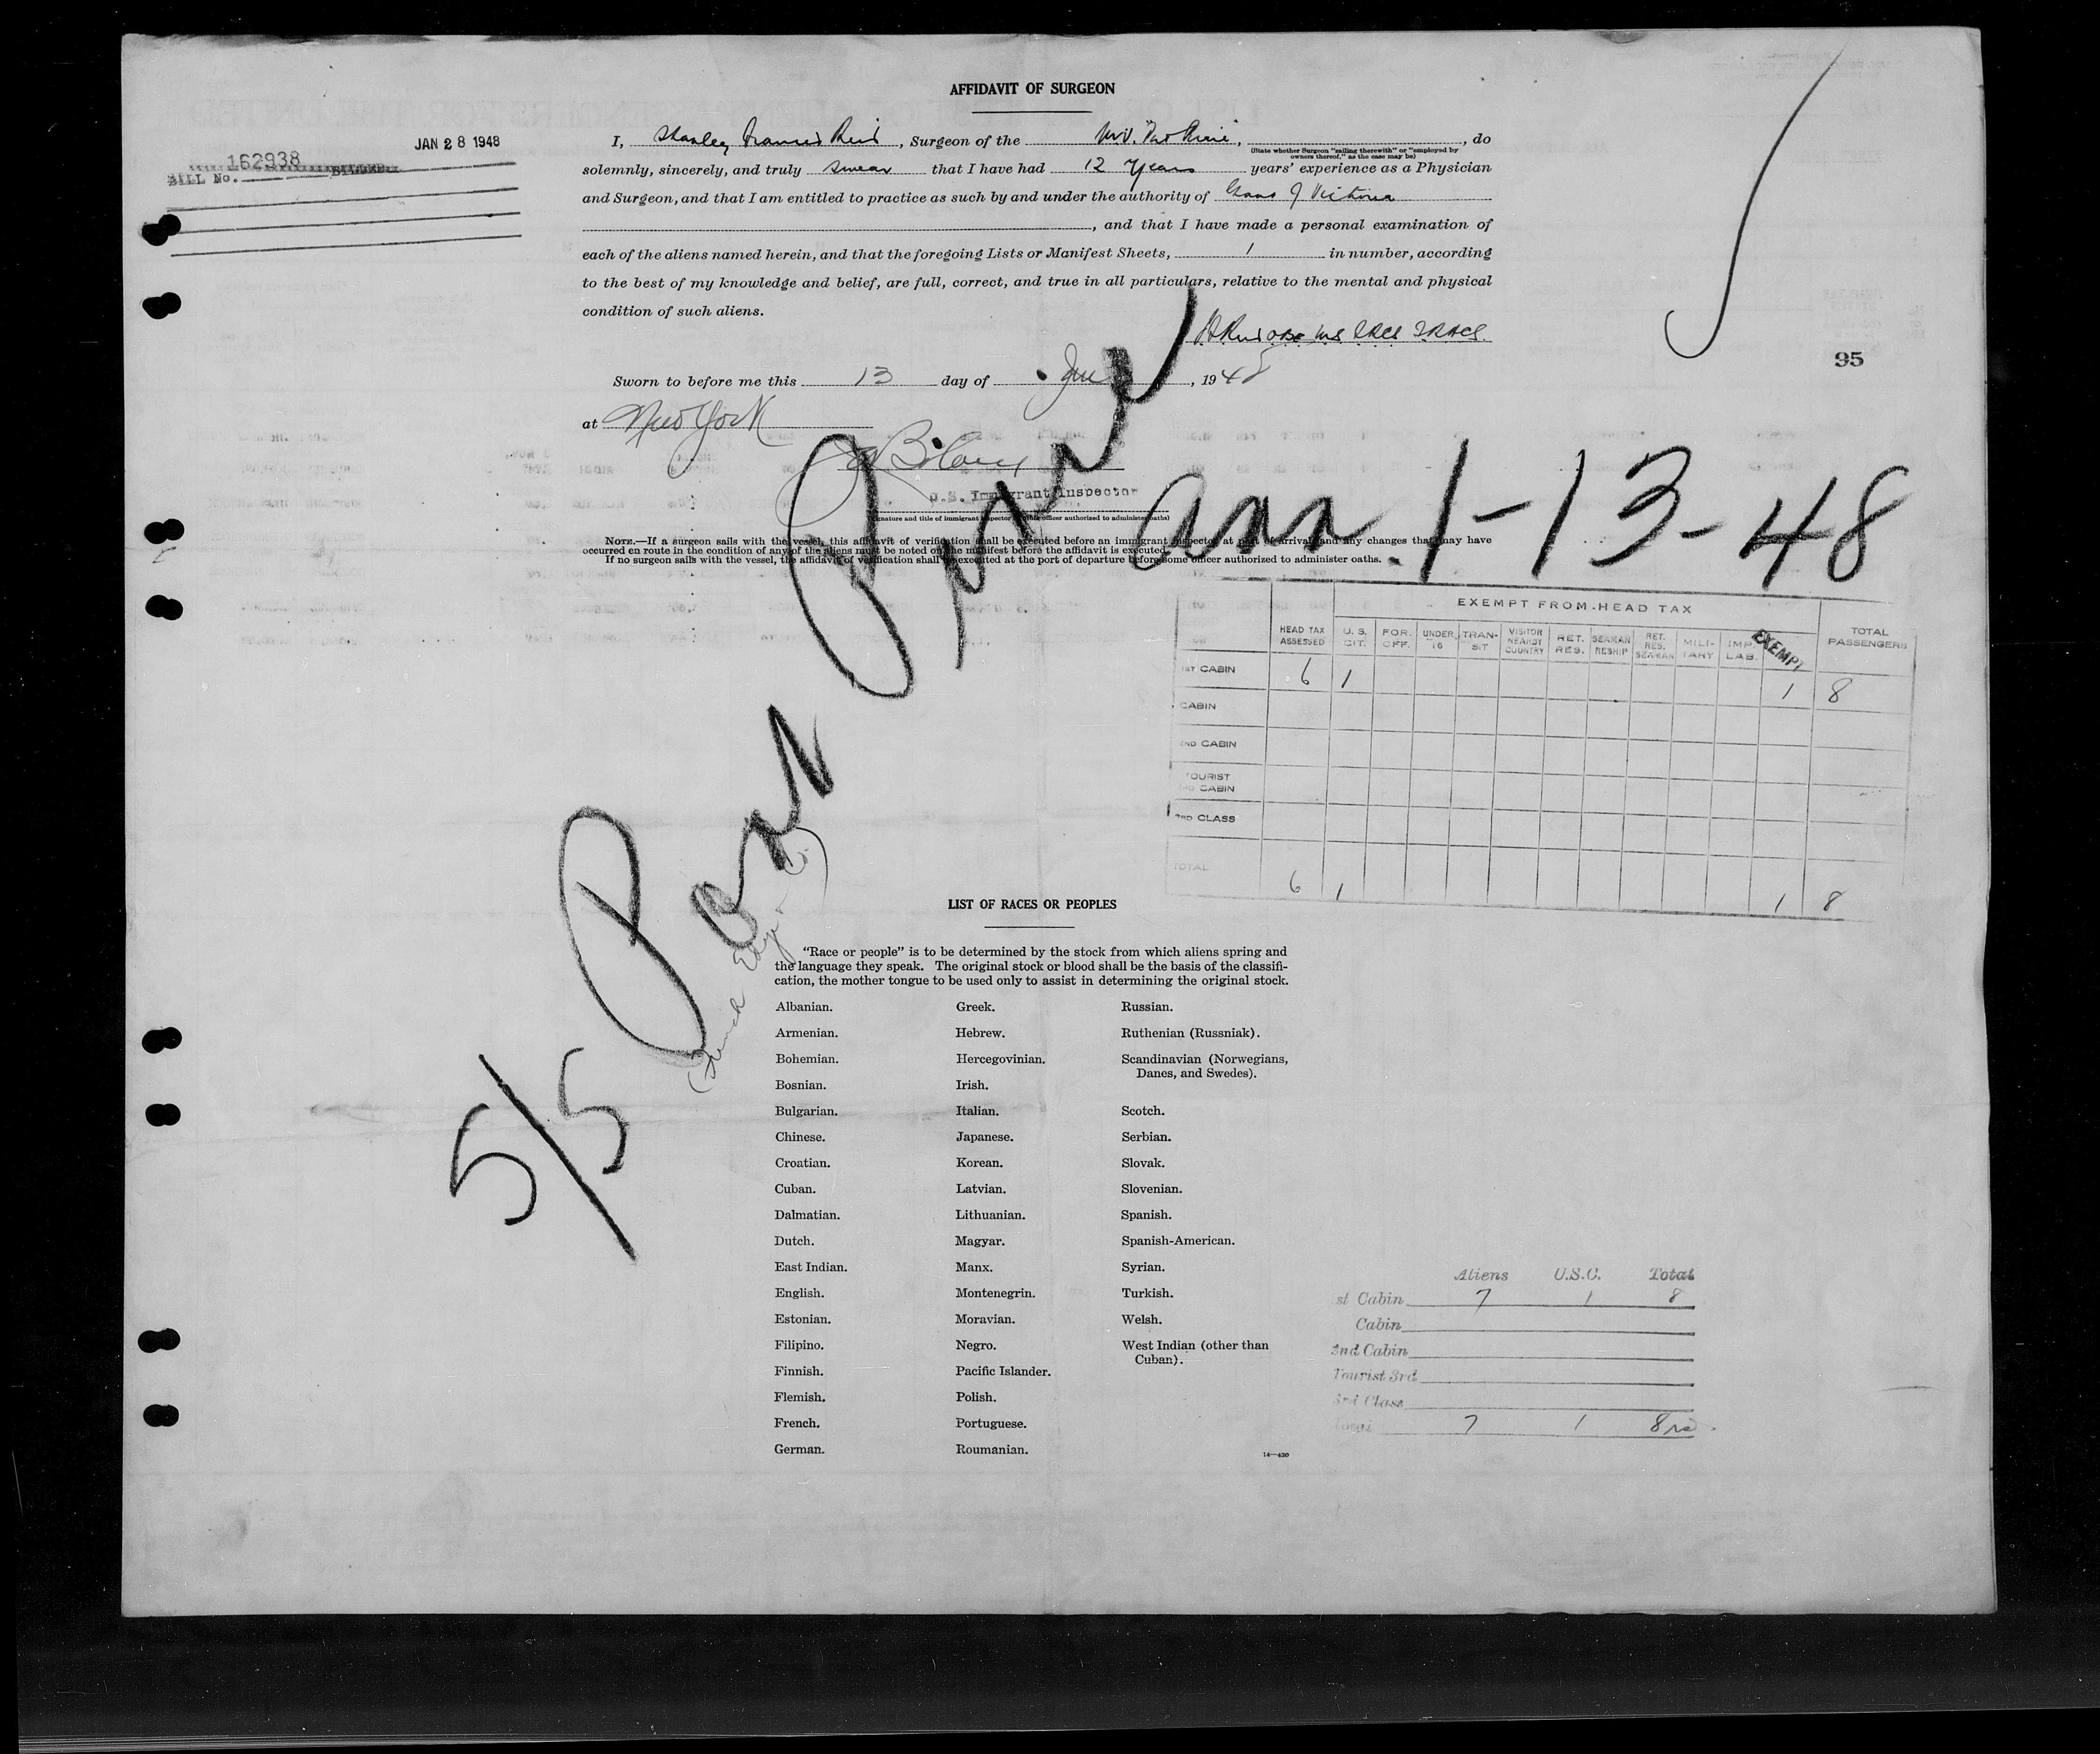 AFFIDAVIT OF SURGEON
JAN 28 1948
162938
BILL No.
I, Stanley Francis Reid, Surgeon of the M.V. "Port, do
(State whether Surgeon "sailing therewith" or "employed by
owners thereof," as the case may be)
solemnly, sincerely, and truly swear that I have had 12 years years' experience as a Physician
and Surgeon, and that I am entitled to practice as such by and under the authority of of Victoria
, and that I have made a personal examination of
each of the aliens named herein, and that the foregoing Lists or Manifest Sheets, 1 in number, according
to the best of my knowledge and belief, are full, correct, and true in all particulars, relative to the mental and physical
condition of such aliens.
95
Sworn to before me this 13 day of Jan, 1948
at New York
U.S. Immigrant Inspector
(Signature and title of immigrant inspector or other officer authorized to administer oaths)
NOTE.—If a surgeon sails with the vessel, this affidavit of verification shall be executed before an immigrant inspector at port of arrival, and any changes that may have
occurred en route in the condition of any of the aliens must be noted on the manifest before the affidavit is executed.
If no surgeon sails with the vessel, the affidavit of verification shall be executed at the port of departure before some officer authorized to administer oaths.
5/5 Port
arr. 1-13-48
EXEMPT FROM HEAD TAX
HEAD TAX ASSESSED U.S. CIT. FOR. OFF. UNDER 16 TRANSIT VISITOR NEARBY COUNTRY RET. RES. SEAMAN RESHIP RET. RES. SEAMAN MILITARY IMP. LAB. EXEMPT TOTAL PASSENGERS
1ST CABIN 6 1 1 8
CABIN
2ND CABIN
TOURIST
3RD CABIN
3RD CLASS
TOTAL 6 1 1 8
LIST OF RACES OR PEOPLES
"Race or people" is to be determined by the stock from which aliens spring and
the language they speak. The original stock or blood shall be the basis of the classifi-
cation, the mother tongue to be used only to assist in determining the original stock.
Albanian. Greek. Russian.
Armenian. Hebrew. Ruthenian (Russniak).
Bohemian. Hercegovinian. Scandinavian (Norwegians,
Danes, and Swedes).
Bosnian. Irish.
Bulgarian. Italian. Scotch.
Chinese. Japanese. Serbian.
Croatian. Korean. Slovak.
Cuban. Latvian. Slovenian.
Dalmatian. Lithuanian. Spanish.
Dutch. Magyar. Spanish-American.
East Indian. Manx. Syrian.
English. Montenegrin. Turkish.
Estonian. Moravian. Welsh.
Filipino. Negro. West Indian (other than
Cuban).
Finnish. Pacific Islander.
Flemish. Polish.
French. Portuguese.
German. Roumanian.
14—430
Aliens U.S.C. Total
1st Cabin 7 1 8
Cabin
2nd Cabin
Tourist 3rd
3rd Class
Total 7 1 8